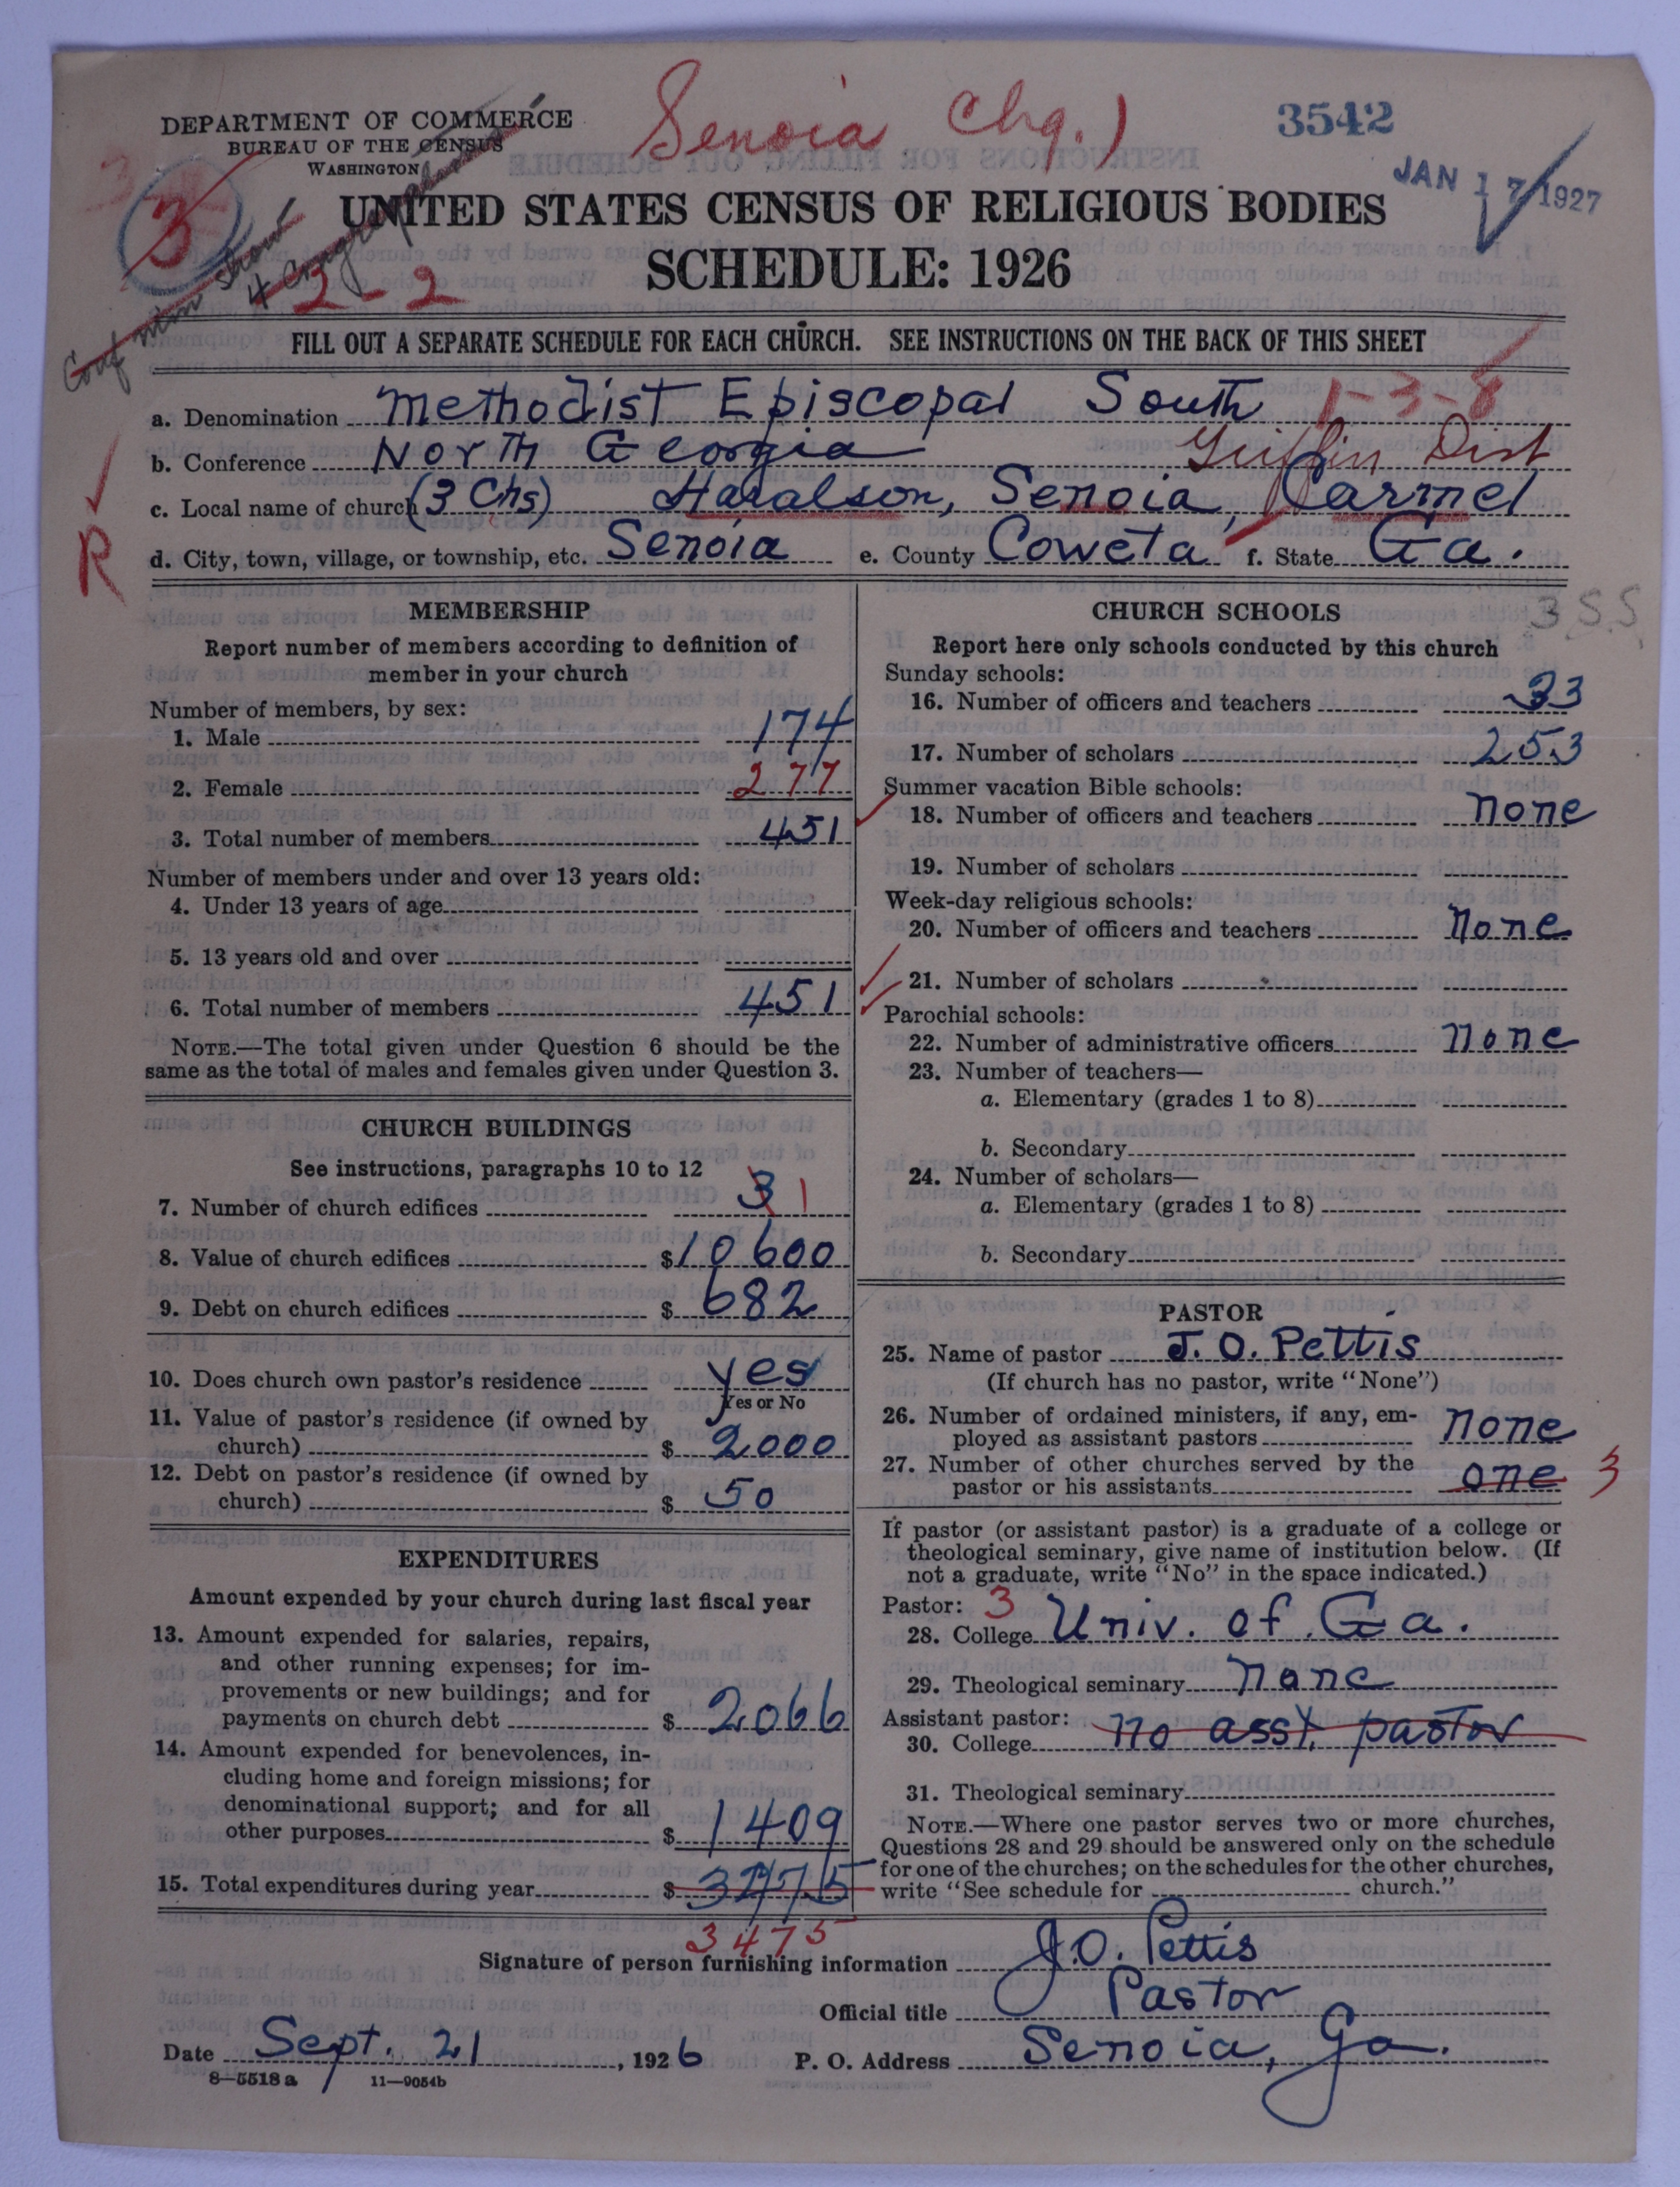 Senoia Chg.)
3542
DEPARTMENT OF COMMERCE
BUREAU OF THE CENSUS
WASHINGTON
JAN 17 1927
3
UNITED STATES CENSUS OF RELIGIOUS BODIES
SCHEDULE: 1926
2-2
FILL OUT A SEPARATE SCHEDULE FOR EACH CHURCH. SEE INSTRUCTIONS ON THE BACK OF THIS SHEET
a. Denomination Methodist Episcopal South 1-3-8
b. Conference North Georgia Griffin Dist
c. Local name of church (3 Chs) Haralson, Senoia, Carmel
R
d. City, town, village, or township, etc. Senoia e. County Coweta f. State Ga.
MEMBERSHIP
Report number of members according to definition of
member in your church
Number of members, by sex:
1. Male 174
2. Female 277
3. Total number of members 451
Number of members under and over 13 years old:
4. Under 13 years of age
5. 13 years old and over
6. Total number of members 451
NOTE.—The total given under Question 6 should be the
same as the total of males and females given under Question 3.
CHURCH BUILDINGS
See instructions, paragraphs 10 to 12
7. Number of church edifices 3 1
8. Value of church edifices $10600
9. Debt on church edifices $ 682
10. Does church own pastor's residence yes
Yes or No
11. Value of pastor's residence (if owned by
church) $ 2000
12. Debt on pastor's residence (if owned by
church) $ 50
EXPENDITURES
Amount expended by your church during last fiscal year
13. Amount expended for salaries, repairs,
and other running expenses; for im-
provements or new buildings; and for
payments on church debt $ 2066
14. Amount expended for benevolences, in-
cluding home and foreign missions; for
denominational support; and for all
other purposes $ 1409
15. Total expenditures during year $
3475
CHURCH SCHOOLS
3 S.S.
Report here only schools conducted by this church
Sunday schools:
16. Number of officers and teachers 33
17. Number of scholars 253
Summer vacation Bible schools:
18. Number of officers and teachers none
19. Number of scholars
Week-day religious schools:
20. Number of officers and teachers none
21. Number of scholars
Parochial schools:
22. Number of administrative officers none
23. Number of teachers—
a. Elementary (grades 1 to 8)
b. Secondary
24. Number of scholars—
a. Elementary (grades 1 to 8)
b. Secondary
PASTOR
25. Name of pastor J. O. Pettis
(If church has no pastor, write "None")
26. Number of ordained ministers, if any, em-
ployed as assistant pastors none
27. Number of other churches served by the
pastor or his assistants one 3
If pastor (or assistant pastor) is a graduate of a college or
theological seminary, give name of institution below. (If
not a graduate, write "No" in the space indicated.)
Pastor: 3
28. College Univ. of Ga.
29. Theological seminary none
Assistant pastor:
30. College no asst. pastor
31. Theological seminary
NOTE.—Where one pastor serves two or more churches,
Questions 28 and 29 should be answered only on the schedule
for one of the churches; on the schedules for the other churches,
write "See schedule for church."
Signature of person furnishing information J. O. Pettis
Official title Pastor
Date Sept. 21, 1926 P. O. Address Senoia, Ga.
8—5518 a 11—9054b